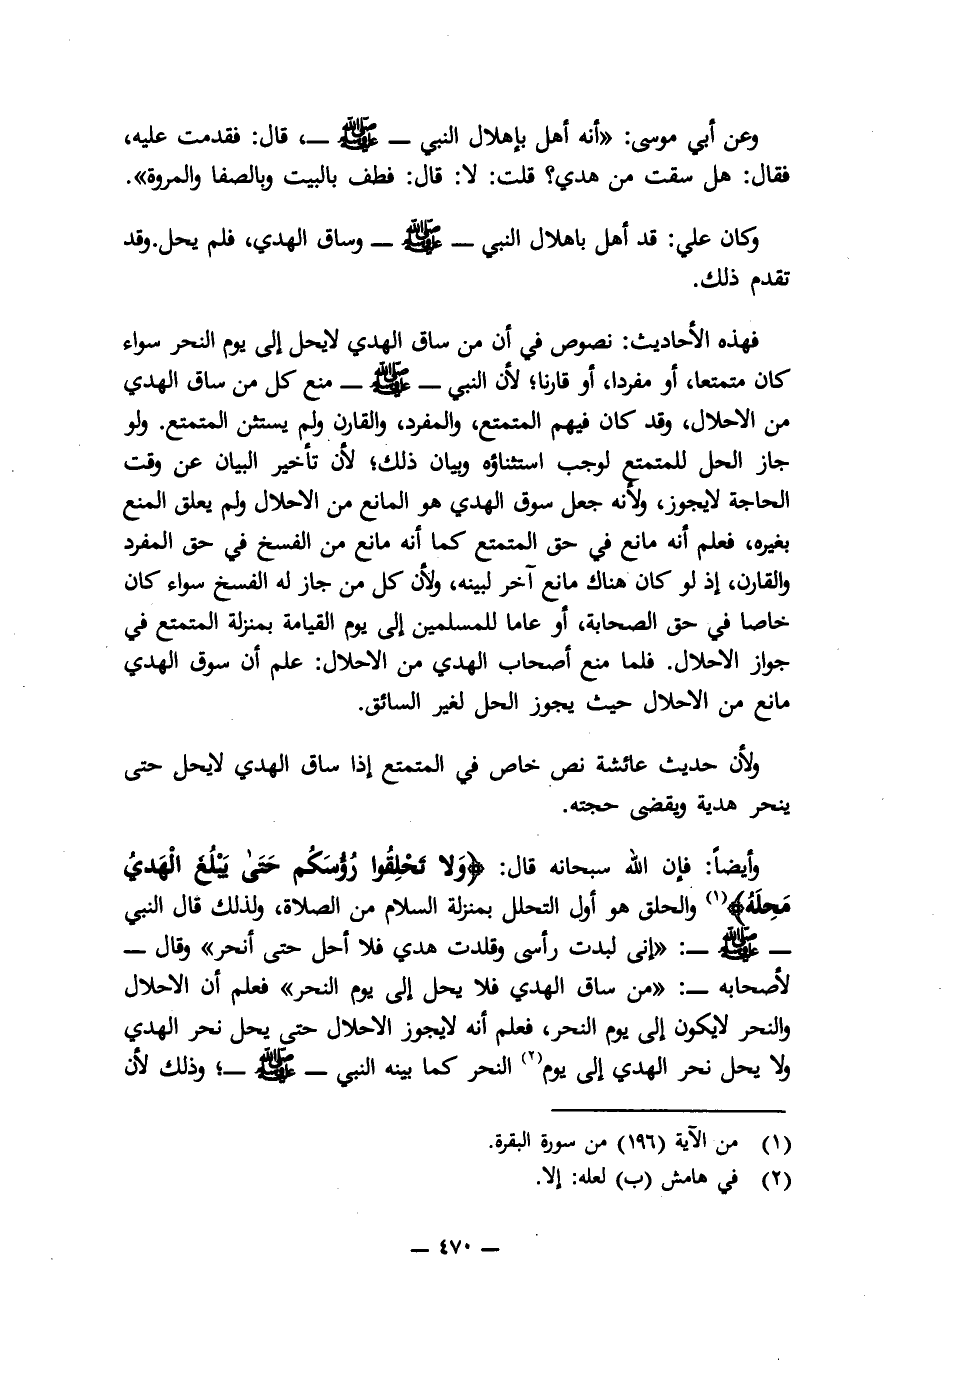 وعن أبي موسى: «أنه أهل بإهلال النبي ــ ﷺ ــ، قال: فقدمت عليه،
فقال: هل سقت من هدي؟ قلت: لا: قال: فطف بالبيت وبالصفا والمروة».
وكان علي: قد أهل باهلال النبي ــ ﷺ ــ وساق الهدي، فلم يحل.وقد
تقدم ذلك.
فهذه الأحاديث: نصوص في أن من ساق الهدي لايحل إلى يوم النحر سواء
كان متمتعا، أو مفردا، أو قارنا؛ لأن النبي ــ ﷺ ــ منع كل من ساق الهدي
من الاحلال، وقد كان فيهم المتمتع، والمفرد، والقارن ولم يستثن المتمتع. ولو
جاز الحل للمتمتع لوجب استثناؤه وبيان ذلك؛ لأن تأخير البيان عن وقت
الحاجة لايجوز، ولأنه جعل سوق الهدي هو المانع من الاحلال ولم يعلق المنع
بغيره، فعلم أنه مانع في حق المتمتع كما أنه مانع من الفسخ في حق المفرد
والقارن، إذ لو كان هناك مانع آخر لبينه، ولأن كل من جاز له الفسخ سواء كان
خاصا في حق الصحابة، أو عاما للمسلمين إلى يوم القيامة بمنزلة المتمتع في
جواز الاحلال. فلما منع أصحاب الهدي من الاحلال: علم أن سوق الهدي
مانع من الاحلال حيث يجوز الحل لغير السائق.
ولأن حديث عائشة نص خاص في المتمتع إذا ساق الهدي لايحل حتى
ينحر هدية ويقضى حجته.
وأيضاً: فإن الله سبحانه قال: ﴿وَلا تَحْلِقُوا رُؤُسَكُم حَتَىٰ يَبْلُغَ الْهَديُ
مَحِلَهُ﴾(١) والحلق هو أول التحلل بمنزلة السلام من الصلاة، ولذلك قال النبي
ــ ﷺ ــ: «إنى لبدت رأسى وقلدت هدي فلا أحل حتى أنحر» وقال ــ
لأصحابه ــ: «من ساق الهدي فلا يحل إلى يوم النحر» فعلم أن الاحلال
والنحر لايكون إلى يوم النحر، فعلم أنه لايجوز الاحلال حتى يحل نحر الهدي
ولا يحل نحر الهدي إلى يوم(٢) النحر كما بينه النبي ــ ﷺ ــ؛ وذلك لأن
(١) من الآية (١٩٦) من سورة البقرة.
(٢) في هامش (ب) لعله: إلا.
ــ ٤٧٠ ــ